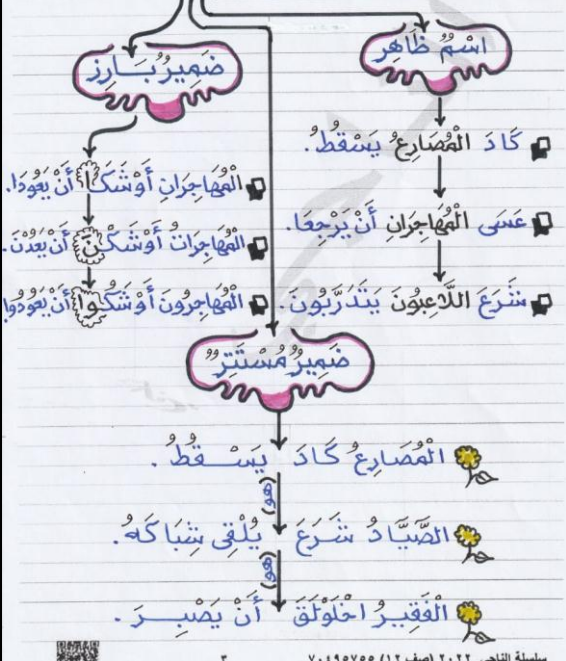 اسْمٌ ظَاهِر
كَادَ الْمُصَارِعُ يَسْقُطُ.
عَسَى الْمُهَاجِرَانِ أَنْ يَرْجِعَا.
شَرَعَ اللَّاعِبُونَ يَتَدَرَّبُونَ.
ضَمِيرٌ بَارِز
الْمُهَاجِرَانِ أَوْشَكَا أَنْ يَعُودَا.
الْمُهَاجِرَاتُ أَوْشَكْنَ أَنْ يَعُدْنَ.
الْمُهَاجِرُونَ أَوْشَكُوا أَنْ يَعُودُوا
ضَمِيرٌ مُسْتَتِرٌ
الْمُصَارِعُ كَادَ يَسْقُطُ.
(هو)
الصَّيَّادُ شَرَعَ يُلْقِي شِبَاكَهُ.
(هو)
الْفَقِيرُ اخْلَوْلَقَ أَنْ يَصْبِرَ.
سلسلة الناجي ٢٠٢٢ (صف ١٢) ٧٠٤٩٥٧٥٥
٣